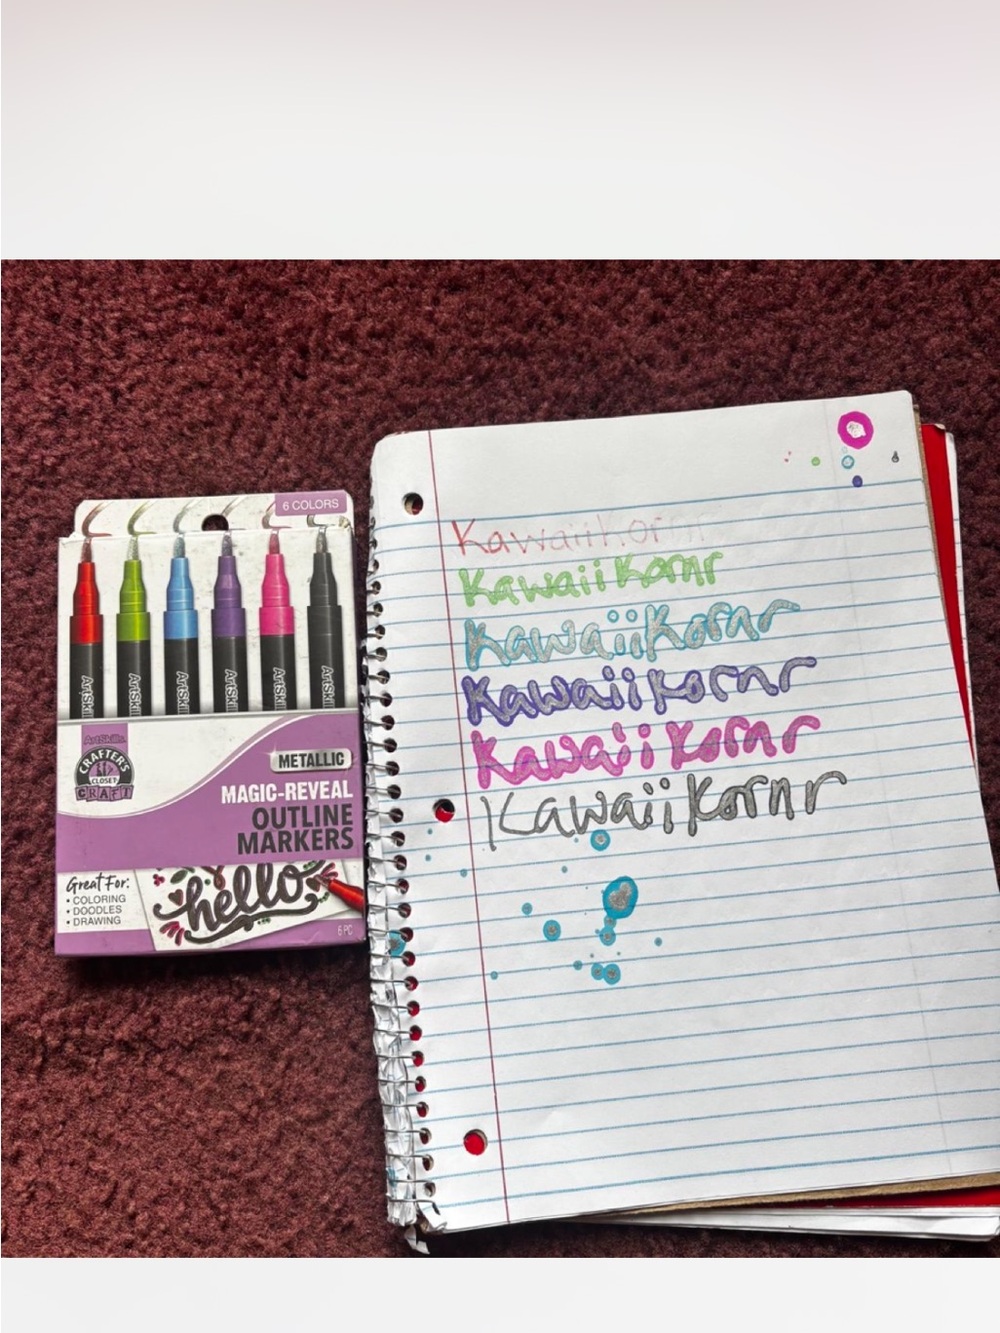 6 COLORS
ArtSkills
CRAFTER'S
CLOSET
CRAFT
METALLIC
MAGIC-REVEAL
OUTLINE
MARKERS
Great For:
• COLORING
• DOODLES
• DRAWING
hello
6 PC
KawaiiKornr
Kawaii Kornr
KawaiiKornr
Kawaii Kornr
Kawaii Kornr
Kawaii Kornr